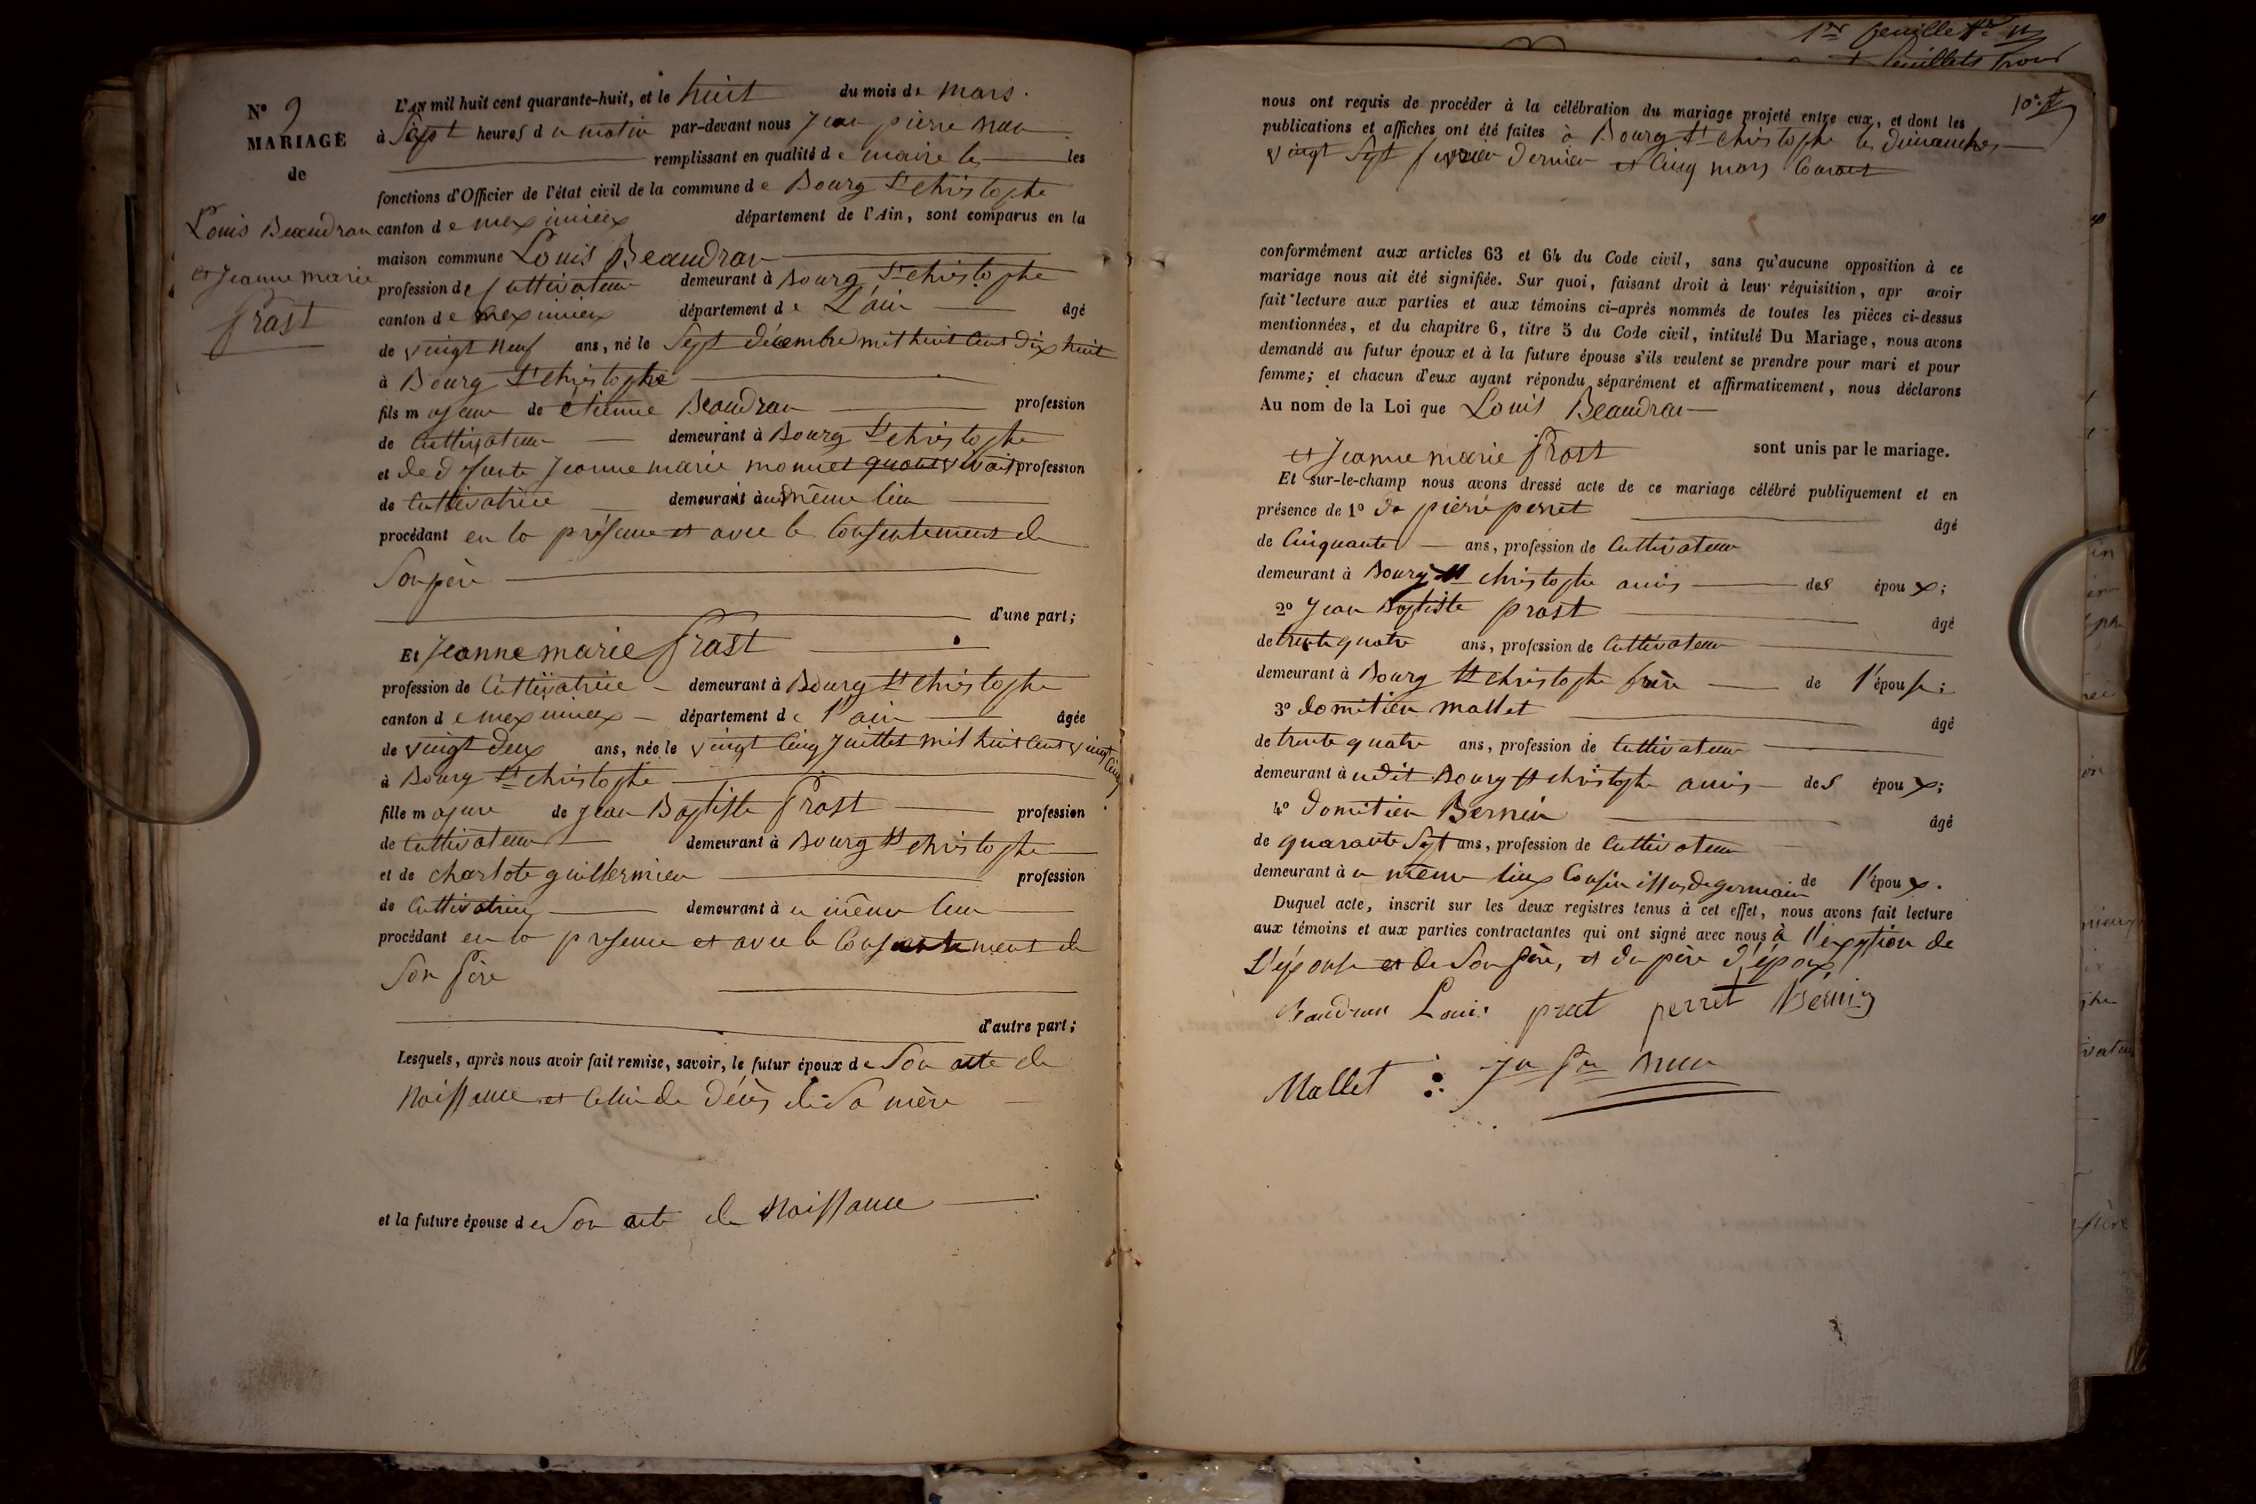 N° 9
MARIAGE
de
Louis Beaudran
et Jeanne marie
Prast
L'AN mil huit cent quarante-huit, et le huit du mois de mars.
à Sept heures du matin par-devant nous Jean pierre
remplissant en qualité de maire les les
fonctions d'Officier de l'état civil de la commune de Bourg St christophe
canton de meximieux département de l'Ain, sont comparus en la
maison commune Louis Beaudran
profession de Cultivateur demeurant à Bourg St christophe
canton de meximieux département de L'ain âgé
de vingt neuf ans, né le Sept décembre mil huit cent dix huit
à Bourg St christophe
fils majeur de étienne Beaudran profession
de Cultivateur demeurant à Bourg St christophe
et de défunte Jeanne marie monnet quand vivait profession
de Cultivatrice demeurant au même lieu
procédant en la présence et avec le Consentement de
Son père
d'une part;
Et Jeanne marie Prast
profession de Cultivatrice demeurant à Bourg St christophe
canton de meximieux département de l'ain âgée
de vingt deux ans, née le vingt Cinq Juillet mil huit Cent vingt Cinq
à Bourg St christophe
fille majeure de Jean Baptiste Prast profession
de Cultivateur demeurant à Bourg St christophe
et de charlote guillermier profession
de Cultivatrice demeurant à u même lieu
procédant en la présence et avec le Consentement de
Son Père
d'autre part;
Lesquels, après nous avoir fait remise, savoir, le futur époux de Son acte de
Naissance et Celui de Décès de Sa mère
et la future épouse de Son acte de Naissance
1er feuille
feuillets
10e
nous ont requis de procéder à la célébration du mariage projeté entre eux, et dont les
publications et affiches ont été faites à Bourg St christophe les dimanches
vingt Sept février dernier et Cinq mars Courant
conformément aux articles 63 et 64 du Code civil, sans qu'aucune opposition à ce
mariage nous ait été signifiée. Sur quoi, faisant droit à leur réquisition, apr avoir
fait lecture aux parties et aux témoins ci-après nommés de toutes les pièces ci-dessus
mentionnées, et du chapitre 6, titre 5 du Code civil, intitulé Du Mariage, nous avons
demandé au futur époux et à la future épouse s'ils veulent se prendre pour mari et pour
femme; et chacun d'eux ayant répondu séparément et affirmativement, nous déclarons
Au nom de la Loi que Louis Beaudran
et Jeanne marie Prast sont unis par le mariage.
Et sur-le-champ nous avons dressé acte de ce mariage célébré publiquement et en
présence de 1° de pierre perret âgé
de Cinquante ans, profession de Cultivateur
demeurant à Bourg St christophe amis des époux;
2° Jean Baptiste prast âgé
de trente quatre ans, profession de Cultivateur
demeurant à Bourg St christophe frère de l'épouse;
3° domitien mallet âgé
de trente quatre ans, profession de Cultivateur
demeurant à udit Bourg St christophe amis des époux;
4° domitien Bernin âgé
de quarante Sept ans, profession de Cultivateur
demeurant à u même lieux Cousin issus de germain de l'époux.
Duquel acte, inscrit sur les deux registres tenus à cet effet, nous avons fait lecture
aux témoins et aux parties contractantes qui ont signé avec nous à l'exeption de
L'épouse et de Son père, et du père d'époux
Baudran Louis prat perret Bernin
Mallet